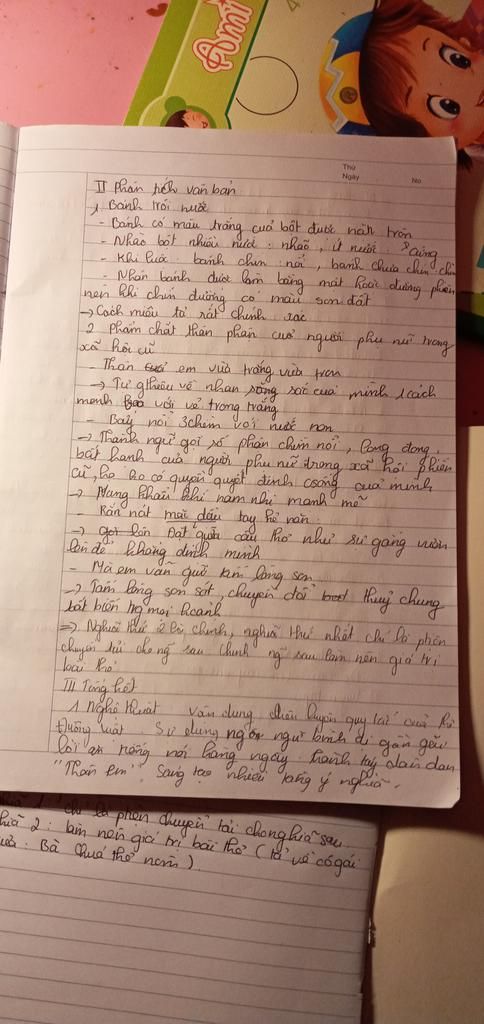 Ami
Thứ
Ngày
No.
II Phân tích văn bản
1, Bánh trôi nước
- Bánh có màu trắng của bột được nặn tròn
- Nhào bột nhiều nước : nhão, ít nước : cứng
- Khi luộc : bánh chín : nổi, bánh chưa chín
- Nhân bánh được làm bằng mật hoặc đường phên
nên khi chín đường có màu son đất
→ Cách miêu tả rất chính xác
2 Phẩm chất thân phận của người phụ nữ trong
xã hội cũ
- Thân em vừa trắng vừa tròn
→ Tự về nhan sắc của mình 1 cách
mạnh với vẻ trong trắng
- Bảy nổi 3 chìm với nước non
→ Thành ngữ gợi số phận chìm nổi, long đong,
bất hạnh của người phụ nữ trong xã hội phiến
cũ, họ ko có quyền quyết định csống của mình
→ Mang khẩu khí nam nhi mạnh mẽ
- Rắn nát mặc dầu tay kẻ nặn
→ Đặt giữa câu thơ như sự gắng vươn
lên để khẳng định mình
- Mà em vẫn giữ tấm lòng son
→ Tấm lòng son sắt, thuỷ chung
bất biến mọi hoành
⇒ Nghĩa thứ 2 là chính, nghĩa thứ nhất chỉ là phện
chuyển tải cho ng sau chính ng sau làm nên giá trị
bài thơ
III Tổng kết
1 Nghệ thuật vận dụng quy tắc của thơ
Đường luật. Sử dụng ngôn ngữ bình dị gần gũi
lời ăn tiếng nói hàng ngày thành tụng dân dan
"Thân em". Sáng tạo nhiều tầng ý nghĩa.
chỉ là phện chuyển tải cho nghĩa sau
2 : làm nên giá trị bài thơ ( tả về cô gái
: Bà chúa thơ nôm )